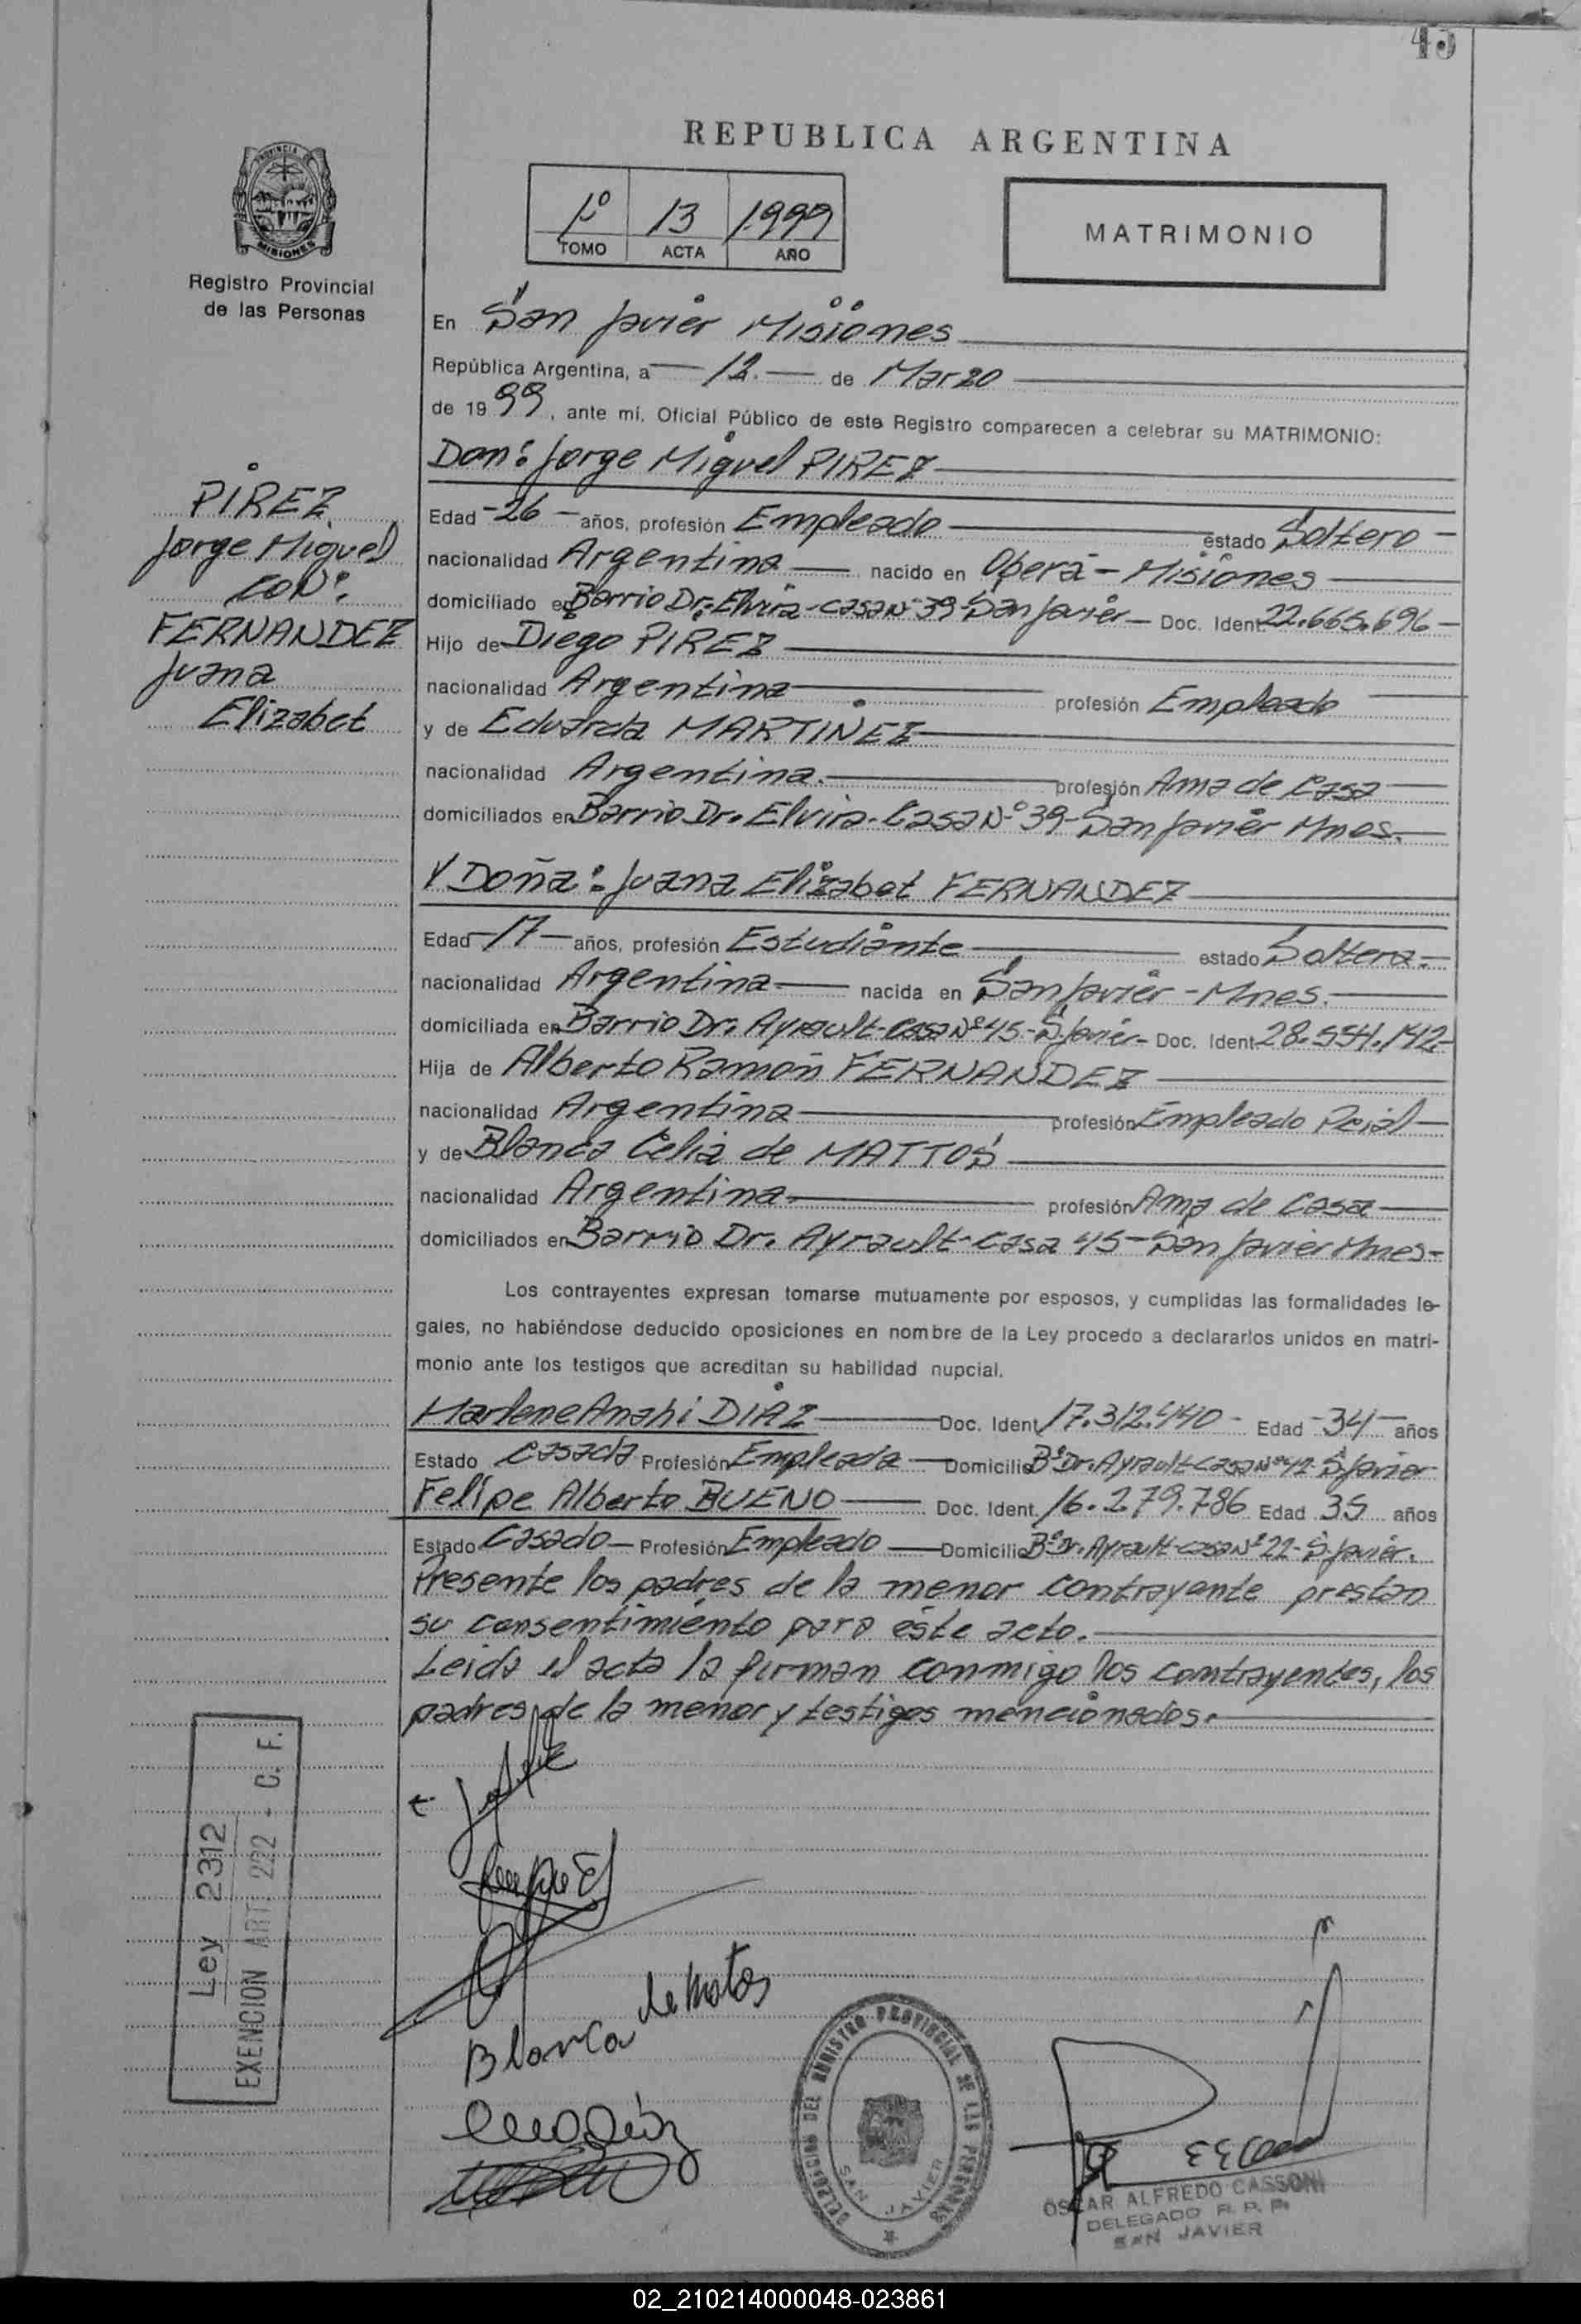 45
REPUBLICA ARGENTINA
PROVINCIA DE
MISIONES
Registro Provincial
de las Personas
1º 13 1999
TOMO ACTA AÑO
MATRIMONIO
En San Javier Misiones
República Argentina, a 12. de Marzo
de 1999, ante mí, Oficial Público de este Registro comparecen a celebrar su MATRIMONIO:
Don: Jorge Miguel PIREZ
PIREZ
Jorge Miguel
CON:
FERNANDEZ
Juana
Elizabet
Edad -26- años, profesión Empleado estado Soltero-
nacionalidad Argentina nacido en Oberá - Misiones
domiciliado en Barrio Dr. Elvira-casa Nº 39-San Javier- Doc. Ident. 22.665.696-
Hijo de Diego PIREZ
nacionalidad Argentina profesión Empleado
y de Eduarda MARTINEZ
nacionalidad Argentina. profesión Ama de Casa
domiciliados en Barrio Dr. Elvira-Casa Nº 39-San Javier Mnes.
Y Doña: Juana Elizabet FERNANDEZ
Edad-17-años, profesión Estudiante estado Soltera.-
nacionalidad Argentina nacida en San Javier - Mnes.
domiciliada en Barrio Dr. Ayrault-Casa Nº 45-S.Javier- Doc. Ident. 28.554.142.-
Hija de Alberto Ramón FERNANDEZ
nacionalidad Argentina profesión Empleado Pcial
y de Blanca Celia de MATTOS
nacionalidad Argentina profesión Ama de Casa
domiciliados en Barrio Dr. Ayrault-Casa 45-San Javier Mnes-
Los contrayentes expresan tomarse mutuamente por esposos, y cumplidas las formalidades le-
gales, no habiéndose deducido oposiciones en nombre de la Ley procedo a declararlos unidos en matri-
monio ante los testigos que acreditan su habilidad nupcial.
Marlene Anahi DIAZ Doc. Ident. 17.312.440- Edad -34- años
Estado Casada Profesión Empleada Domicilio Bº Dr. Ayrault-Casa Nº 42-S.Javier
Felipe Alberto BUENO Doc. Ident. 16.279.786 Edad 35 años
Estado Casado- Profesión Empleado Domicilio Bº Dr. Ayrault-casa Nº 22-S.Javier.
Presente los padres de la menor contrayente prestan
su consentimiento para éste acto.
Leida el acta la firman conmigo los contrayentes, los
padres de la menor y testigos mencionados.
Ley 2312
EXENCION ART. 222 - C. F.
Blanca de Matos
DELEGACION DEL REGISTRO PROVINCIAL DE LAS PERSONAS
SAN JAVIER
OSCAR ALFREDO CASSONI
DELEGADO R. P. P.
SAN JAVIER
02_210214000048-023861